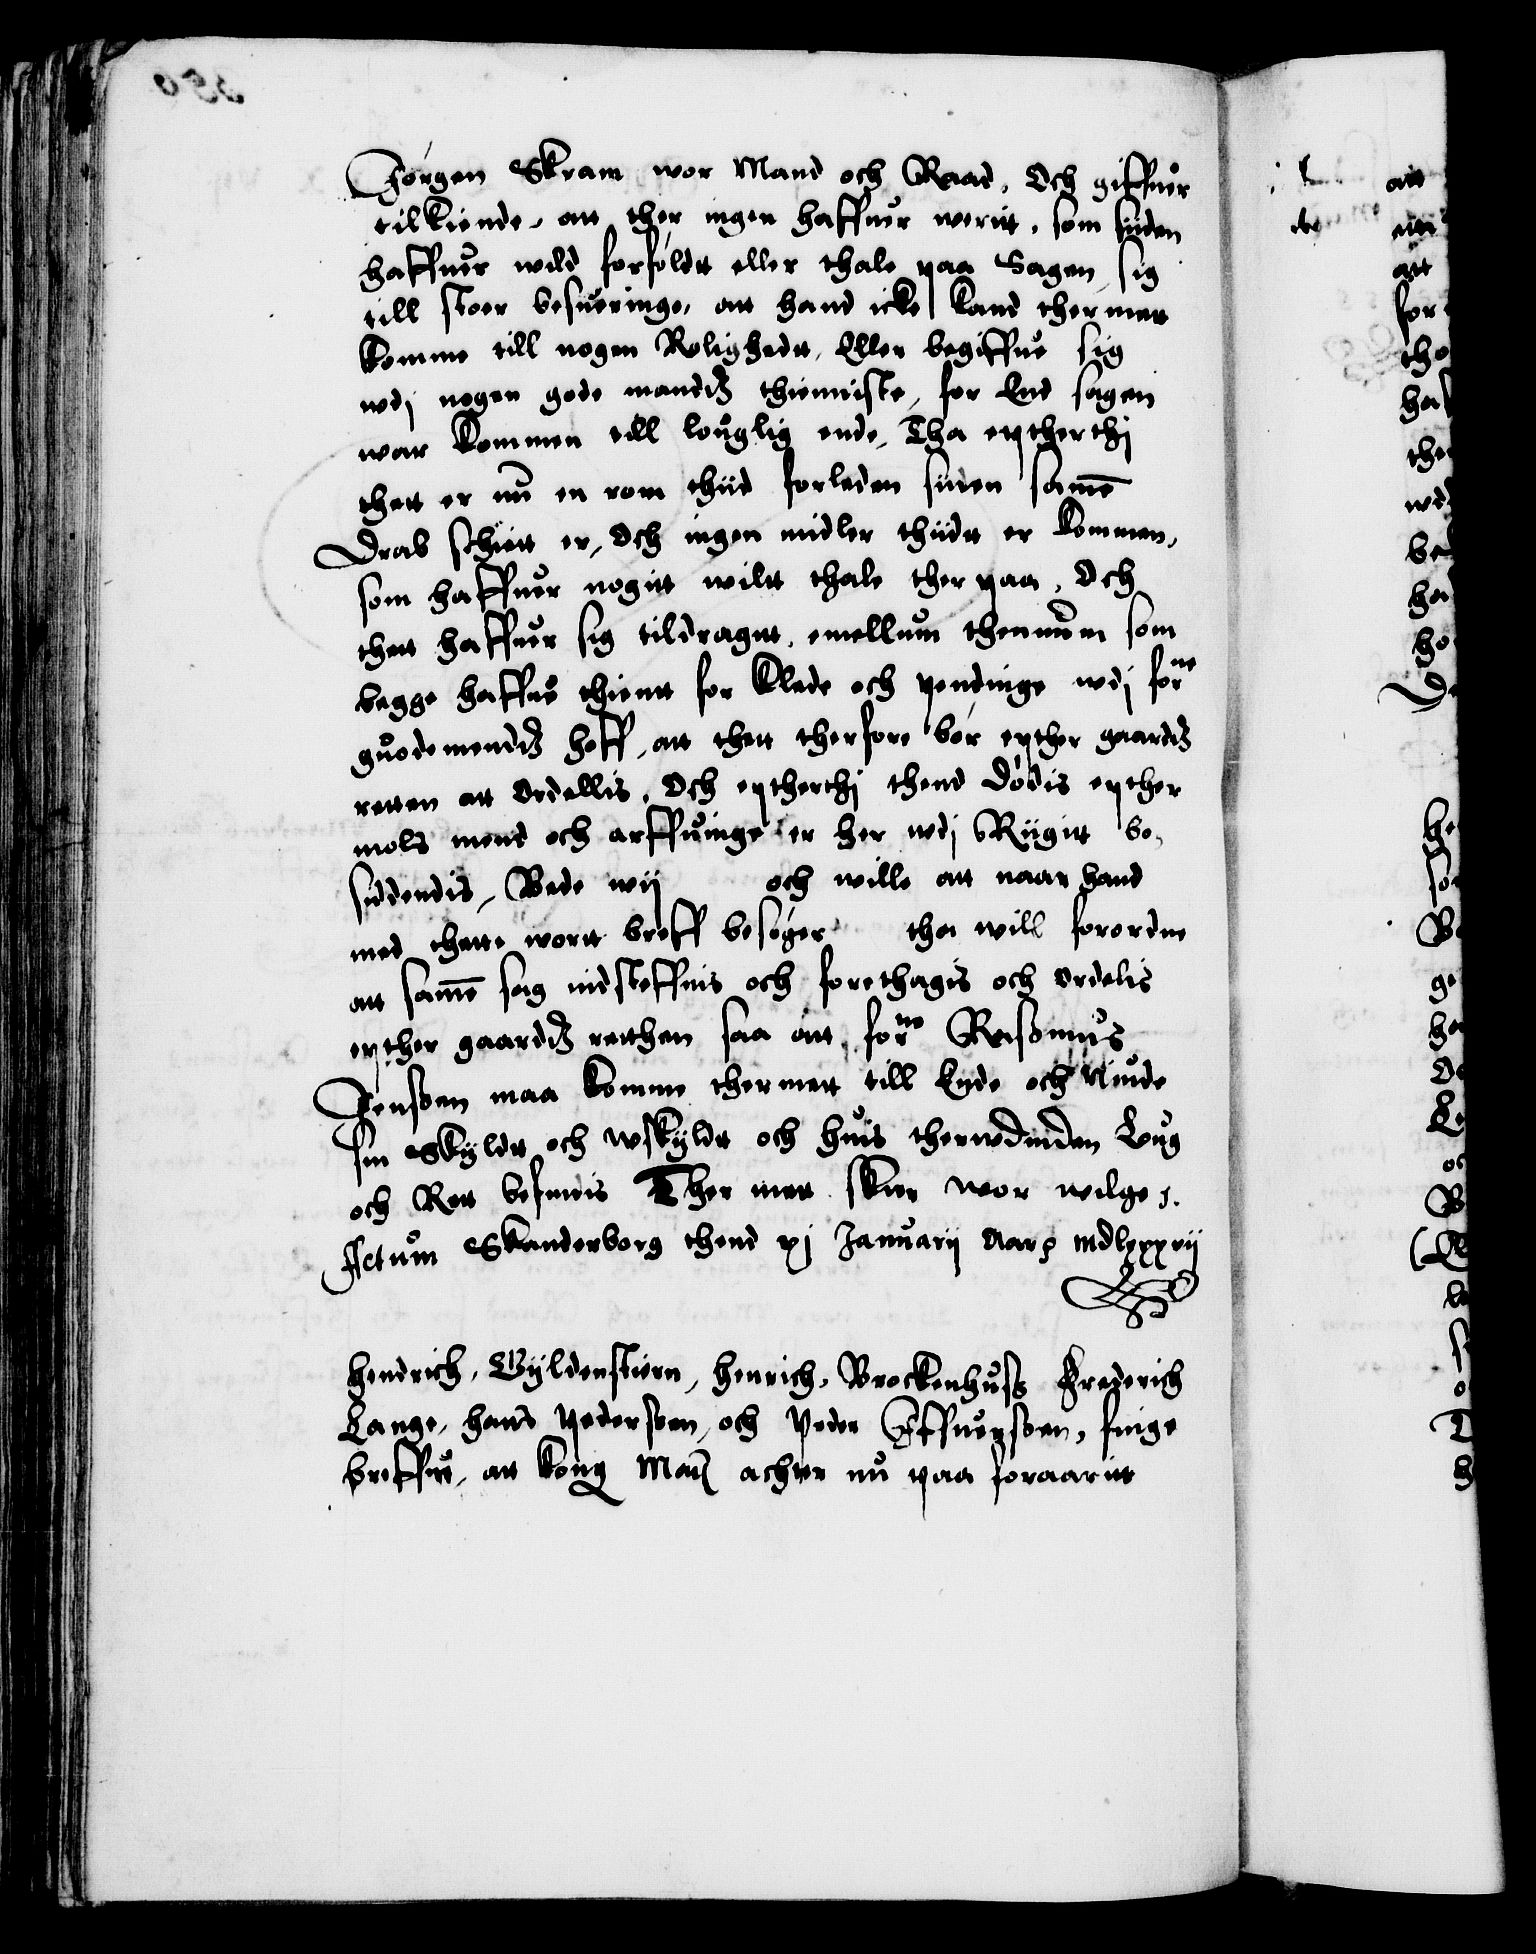 Jørgen Skram wor Mand och Raad, Och giffuer
tilkiende, att ther ingen haffuer weritt, som siiden
haffuer wild forføldtt eller thale paa Sagen, sig
till stoer besueringe, att hand icke kand thermett
komme till nogen Rolighedtt, Eller begiffue sig
wdj nogen gode mandtz thienniste, for End sagen
war kommen till louglig ende, Tha eptherthj
thett er nu en rom thiid forleden siiden samme
Drab schiett er, Och ingen midler thiidtt er kommen,
som haffuer nogitt wiltt thale ther paa, Och
thett haffuer sig tildragitt, emellum thennum som
begge haffue thientt for klede och pendinge wdj forne
guodemendtz hoff, att thett therfore bør epther gaardtz
retten att Ordellis, Och eptherthj thend dødis epther
mols mend och arffuinge er her wdj Riigitt be,
siddendis, Bede wij och wille att naar hand
med thette wortt breff besøger tha will forordne
att samme sag indsteffnis och forethagis och ordelis
epther gaardtz retthen saa att forne Rasmus
Jenssen maa komme thermett till Ende och niude
sin Skyldtt och wskyldtt och huis therwdinden Loug
och Rett befindis Ther mett skeer wor wilge,
Actum Skanderborg thend xj Januarij Aars mdlxxxij
Hendrich, Gyldenstiern, Henrich, Brockenhuss Frederich
Lange, Hans Pederssen, och Peder Iffuerssen, finge
breffue, att kong Matt achter nu paa foraaritt